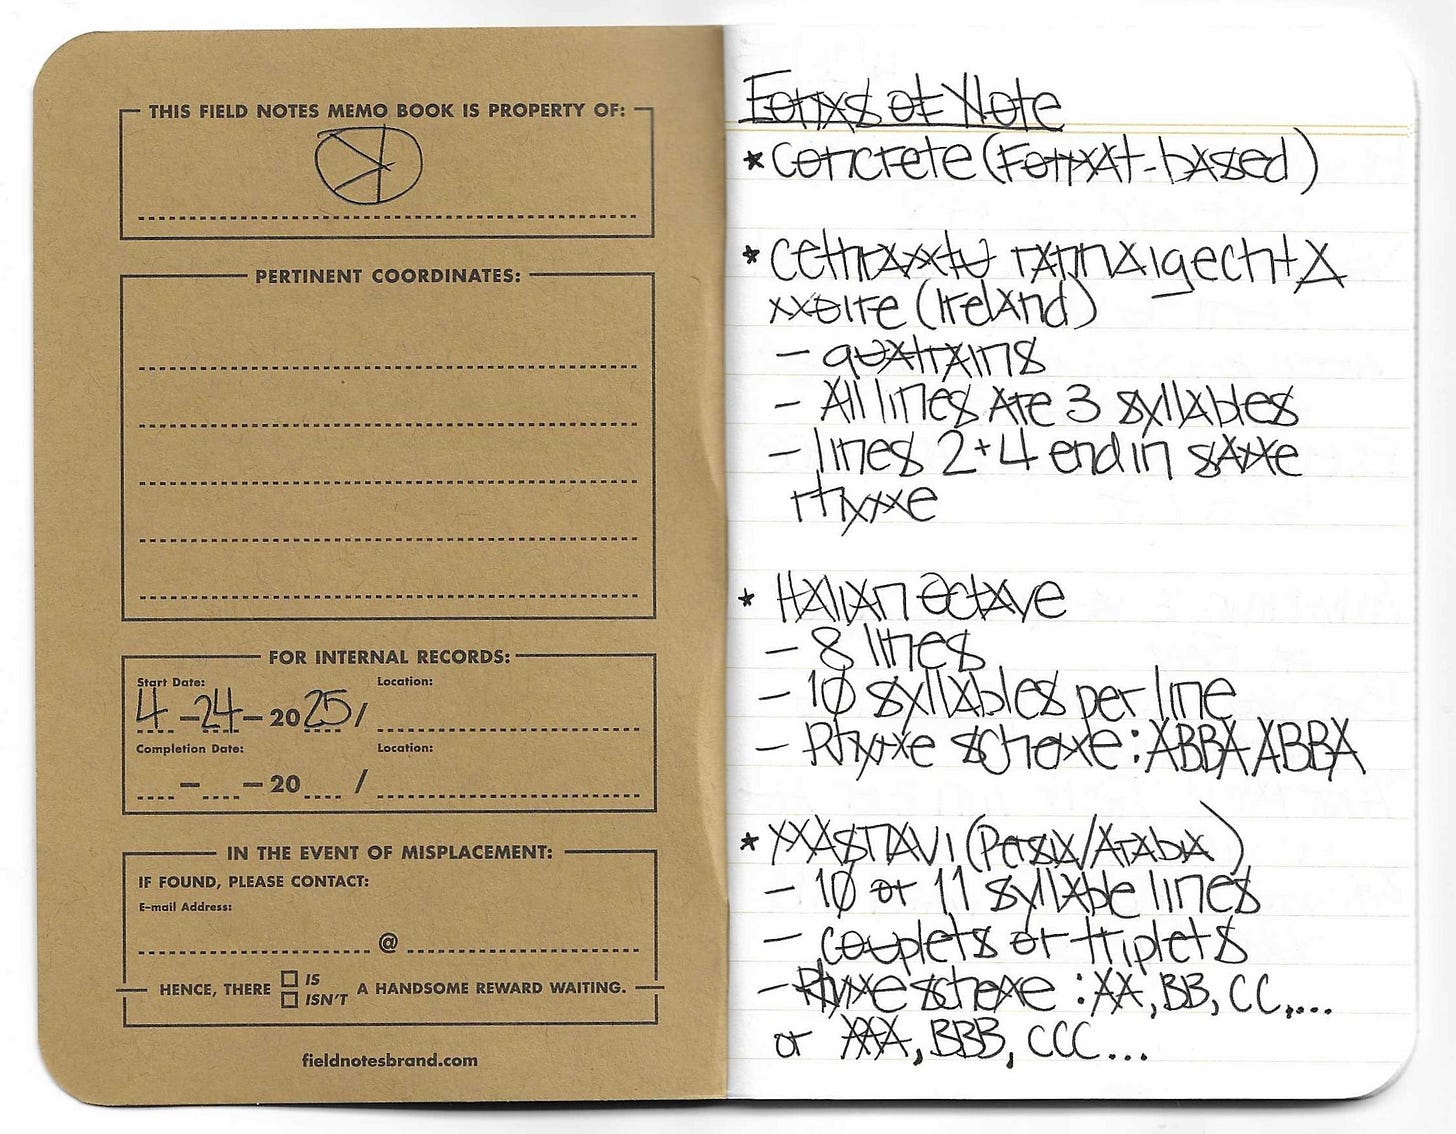 THIS FIELD NOTES MEMO BOOK IS PROPERTY OF:
PERTINENT COORDINATES:
FOR INTERNAL RECORDS:
Start Date:
Location:
4 - 24 - 2025 /
Completion Date:
Location:
- - 20 /
IN THE EVENT OF MISPLACEMENT:
IF FOUND, PLEASE CONTACT:
E-mail Address:
@
HENCE, THERE IS ISN'T A HANDSOME REWARD WAITING.
fieldnotesbrand.com
Forms of Note
* Concrete (Format-based)
* Cethramtu rannaigechta
moire (Ireland)
- quatrains
- All lines are 3 syllables
- lines 2+4 end in same
rhyme
* Italian Octave
- 8 lines
- 10 syllables per line
- Rhyme scheme: ABBAABBA
* Masnavi (Persia/Arabia)
- 10 or 11 syllable lines
- couplets or triplets
- Rhyme scheme: AA, BB, CC,...
or AAA, BBB, CCC...